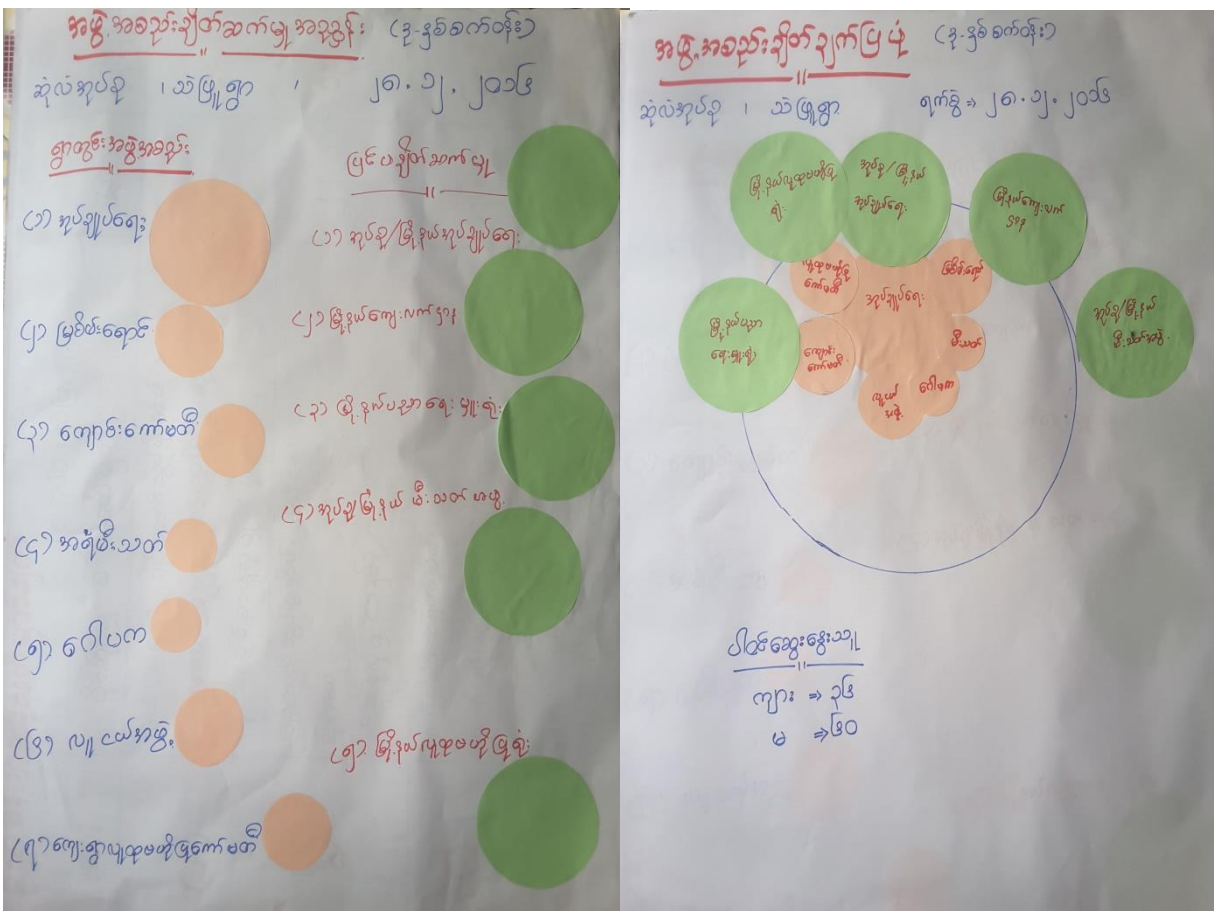 အဖွဲ့အစည်းချိတ်ဆက်မှုအညွှန်း (ဒု-နှစ်စက်ဝန်း)
ဆုံလံအုပ်စု ၊ သဲဖြူရွာ ၊ ၂၈.၁၂.၂၀၁၆
ရွာတွင်းအဖွဲ့အစည်း
(၁) အုပ်ချုပ်ရေး
(၂) မြစိမ်းရောင်
(၃) ကျောင်းကော်မတီ
(၄) အရံမီးသတ်
(၅) ဂေါပက
(၆) လူငယ်အဖွဲ့
(၇) ကျေးရွာလူထုဗဟိုပြုကော်မတီ
ပြင်ပချိတ်ဆက်မှု
(၁) အုပ်စု/မြို့နယ်အုပ်ချုပ်ရေး
(၂) မြို့နယ်ကျေးလက်ဌာန
(၃) မြို့နယ်ပညာရေးမှူးရုံး
(၄) အုပ်စု/မြို့နယ် မီးသတ်အဖွဲ့
(၅) မြို့နယ်လူထုဗဟိုပြုရုံး
အဖွဲ့အစည်းချိတ်ဆက်ပြပုံ (ဒု-နှစ်စက်ဝန်း)
ဆုံလံအုပ်စု ၊ သဲဖြူရွာ ရက်စွဲ ⇒ ၂၈.၁၂.၂၀၁၆
မြို့နယ်လူထုဗဟိုပြု
ရုံး
အုပ်စု/မြို့နယ်
အုပ်ချုပ်ရေး
မြို့နယ်ကျေးလက်
ဌာန
လူထုဗဟိုပြု
ကော်မတီ
အုပ်ချုပ်ရေး
မြစိမ်းရောင်
မြို့နယ်ပညာ
ရေးမှူးရုံး
ကျောင်း
ကော်မတီ
မီးသတ်
အုပ်စု/မြို့နယ်
မီးသတ်အဖွဲ့
လူငယ်
အဖွဲ့
ဂေါပက
ပါဝင်ဆွေးနွေးသူ
ကျား ⇒ ၃၆
မ ⇒ ၆၀